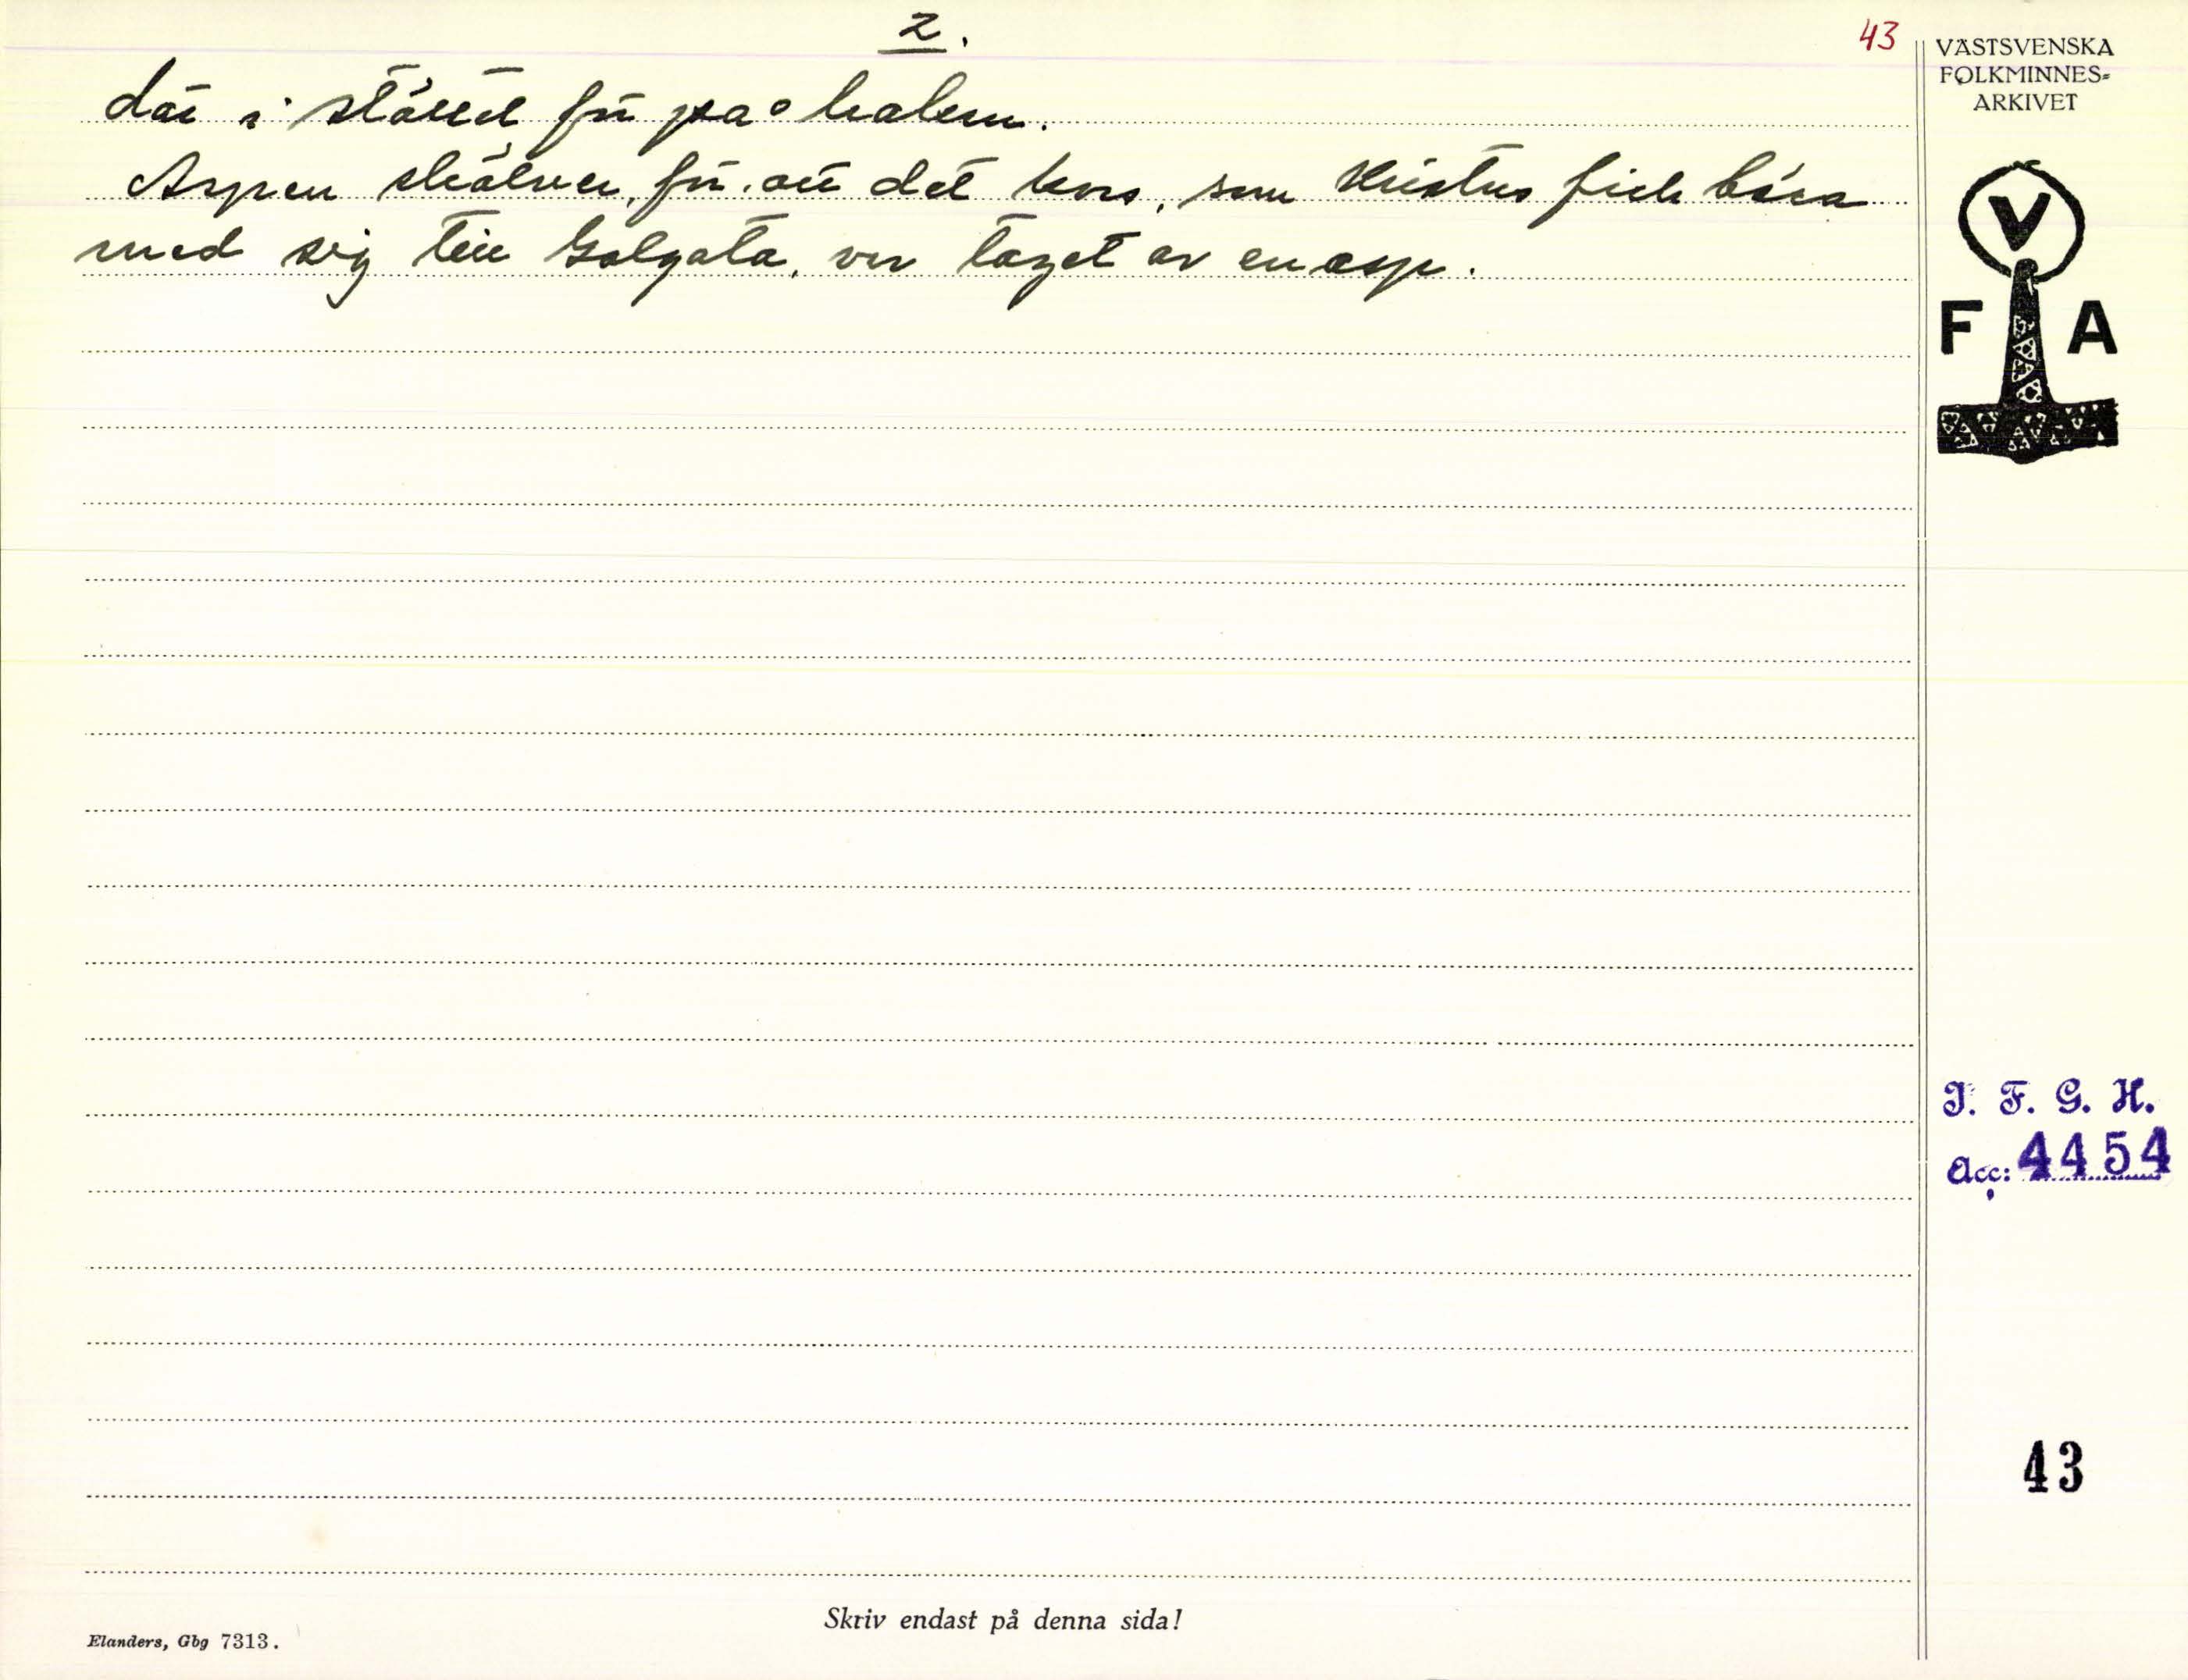 2.
43
där i stället för på halsen.
Aspen skälver, för att det kors, som Kristus fick bära
med sig till Golgata, var taget av en asp.
VÄSTSVENSKA
FOLKMINNES=
ARKIVET
V
F A
I. F. G. H.
Acc: 4454
43
Skriv endast på denna sida!
Elanders, Gbg 7313.